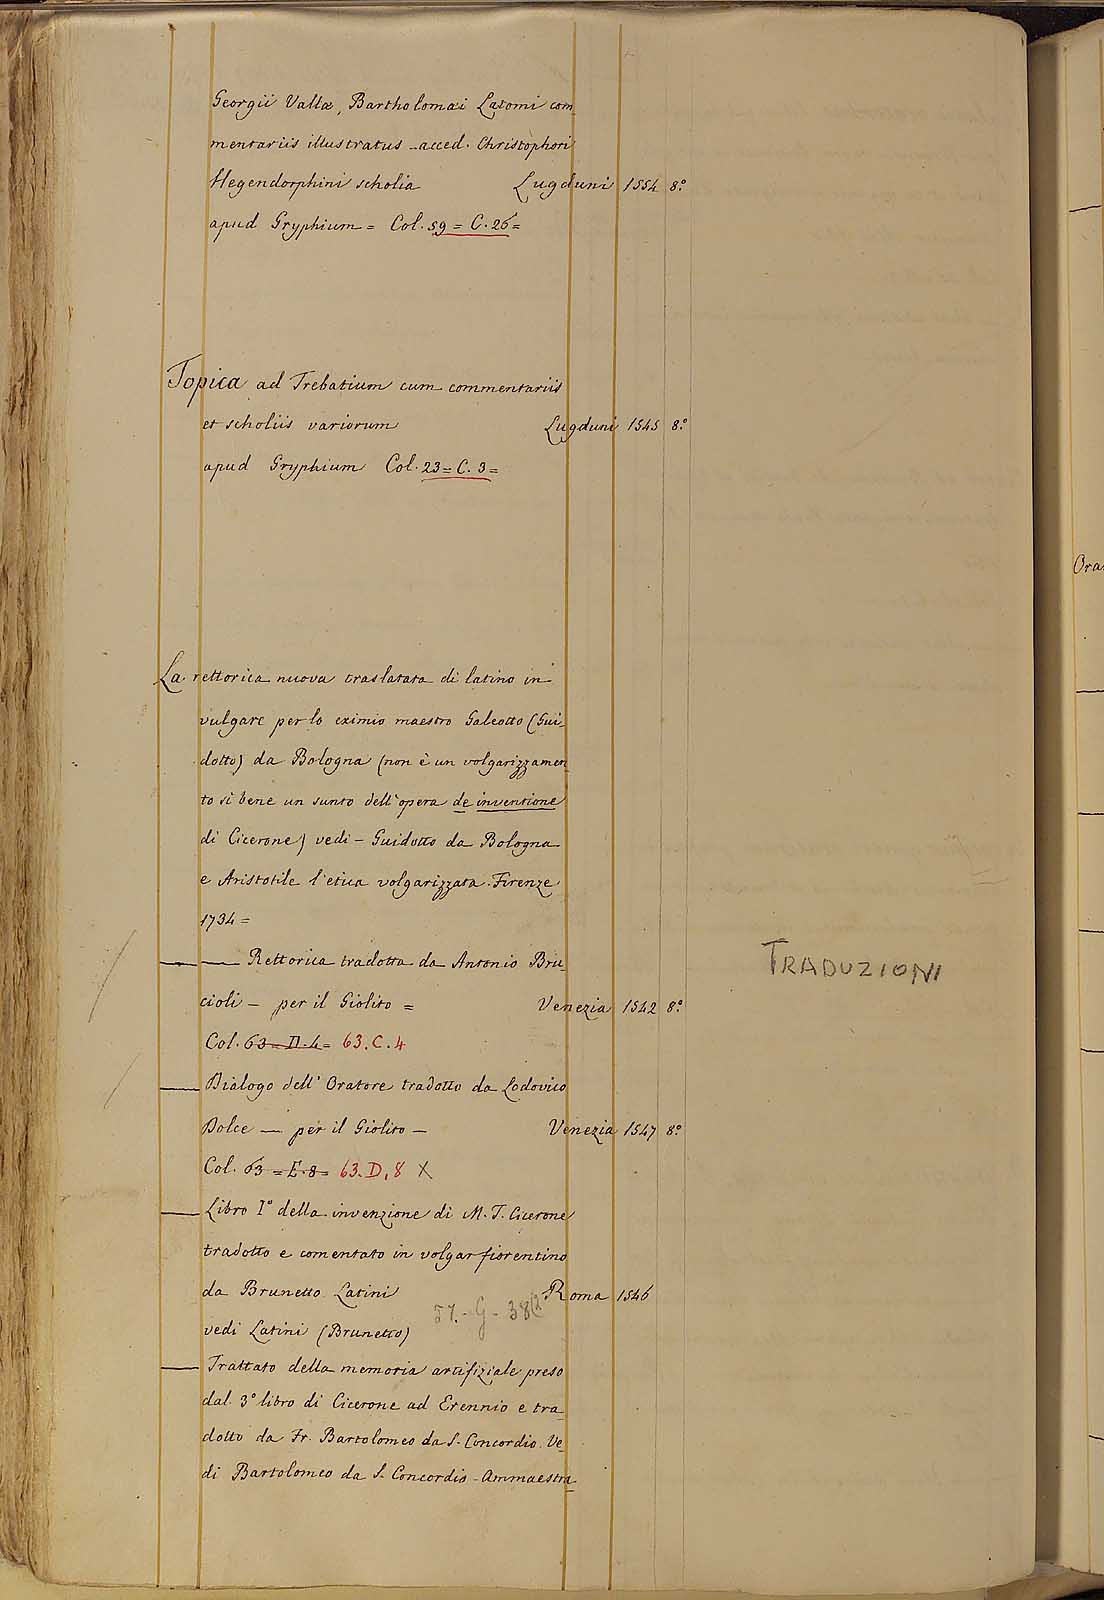 Georgii Vallæ, Bartholomæi Latomi com-
mentariis illustratus - acced. Christophori
Hegendorphini scholia Lugduni 1554 8.°
apud Gryphium = Col. 59 = C. 26 =
Topica ad Trebatium cum commentariis
et scholiis variorum Lugduni 1545 8.°
apud Gryphium Col. 23 = C. 3 =
La rettorica nuova traslatata di latino in
vulgare per lo eximio maestro Galeotto (Gui-
dotto) da Bologna (non è un volgarizzamen-
to sì bene un sunto dell'opera de inventione
di Cicerone) vedi - Guidotto da Bologna
e Aristotile l'etica volgarizzata. Firenze
1734 =
— — Rettorica tradotta da Antonio Bru-
cioli - per il Giolito = Venezia 1542 8.°
Col. 63 = D. 4 = 63. C. 4
TRADUZIONI
— Dialogo dell' Oratore tradotto da Lodovico
Dolce — per il Giolito - Venezia 1547 8.°
Col. 63 = E. 8 = 63. D. 8 X
— Libro I° della invenzione di M. T. Cicerone
tradotto e comentato in volgar fiorentino
da Brunetto Latini Roma 1546
57. - G - 38
vedi Latini (Brunetto)
— Trattato della memoria artifiziale preso
dal 3° libro di Cicerone ad Erennio e tra-
dotto da Fr. Bartolomeo da S. Concordio. Ve-
di Bartolomeo da S. Concordio - Ammaestra-
Ora